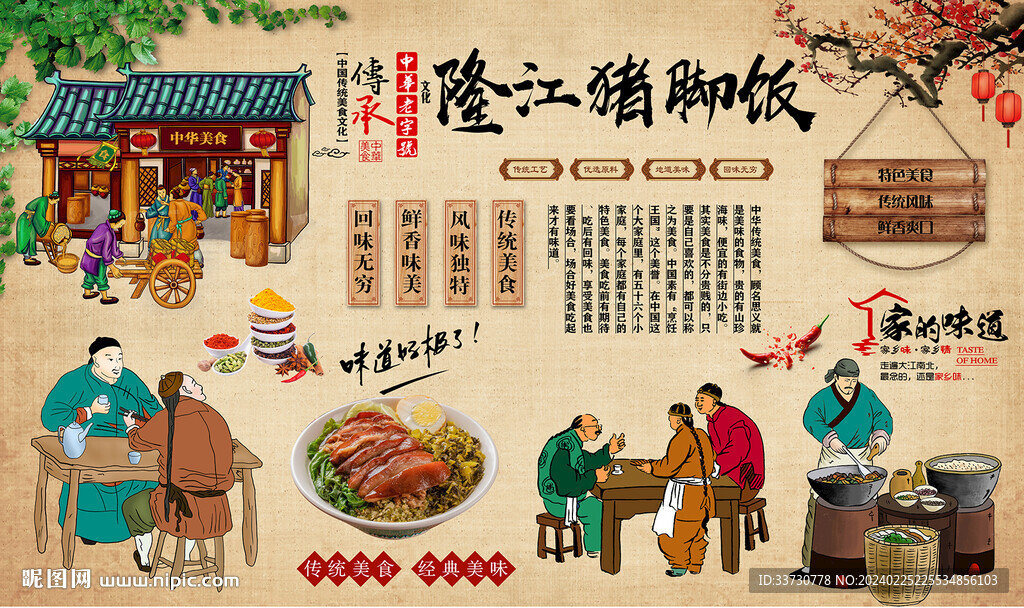 【中国传统美食文化】
傳承
中華美食
中華老字號
文化
隆江猪脚饭
中华美食
传统工艺
优选原料
地道美味
回味无穷
特色美食
传统风味
鲜香爽口
传统美食
风味独特
鲜香味美
回味无穷
中华传统美食，顾名思义就
是美味的食物，贵的有山珍
海味，便宜的有街边小吃。
其实美食是不分贵贱的，只
要是自己喜欢的，都可以称
之为美食。中国素有“烹饪
王国”这个美誉。在中国这
个大家庭里，有五十六个小
家庭，每个家庭都有自己的
特色美食。美食吃前有期待
、吃后有回味，享受美食也
要看场合，场合好美食吃起
来才有味道。
味道好极了！
家的味道
家乡味·家乡情
TASTE
OF HOME
走遍大江南北，
最念的，还是家乡味...
传统美食
经典美味
昵图网 www.nipic.com
ID:33730778 NO:20240225225534856103